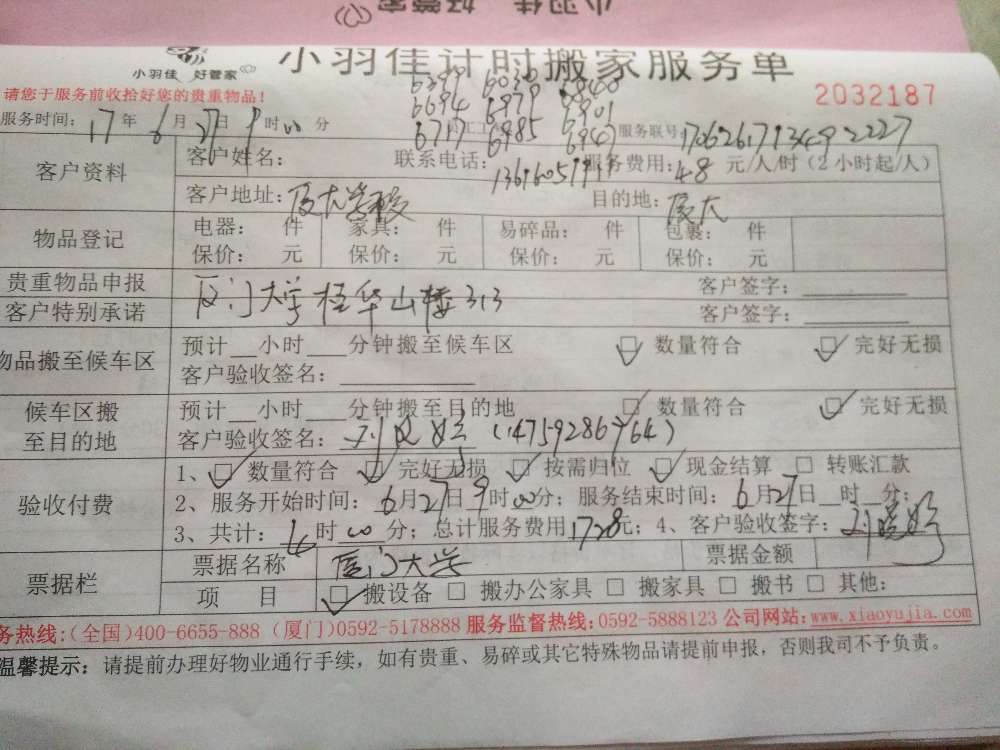 小羽佳 好管家
小羽佳 好管家
小羽佳计时搬家服务单
请您于服务前收拾好您的贵重物品！
2032187
6399 6036 6840
6694 6979 6901
6717 6985 6947
服务时间：17年6月27日9时00分 服务联号：
客户资料
客户姓名： 联系电话： 服务费用：48元/人/时（2小时起/人）
客户地址：厦大学校 目的地：厦大
物品登记
电器： 件 家具： 件 易碎品： 件 包裹： 件
保价： 元 保价： 元 保价： 元 保价： 元
贵重物品申报 客户签字：
厦门大学桂华山楼313
客户特别承诺 客户签字：
物品搬至候车区
预计__小时___分钟搬至候车区 数量符合 完好无损
客户验收签名：
候车区搬至目的地
预计__小时___分钟搬至目的地 数量符合 完好无损
客户验收签名：
验收付费
1、数量符合 完好无损 按需归位 现金结算 转账汇款
2、服务开始时间：6月27日9时00分；服务结束时间：6月27日__时__分；
3、共计：4时00分；总计服务费用1728元；4、客户验收签字：
票据栏
票据名称 厦门大学 票据金额
项 目 搬设备 搬办公家具 搬家具 搬书 其他：
务热线：(全国)400-6655-888（厦门)0592-5178888 服务监督热线：0592-5888123 公司网站：www.xiaoyujia.com
温馨提示：请提前办理好物业通行手续，如有贵重、易碎或其它特殊物品请提前申报，否则我司不予负责。